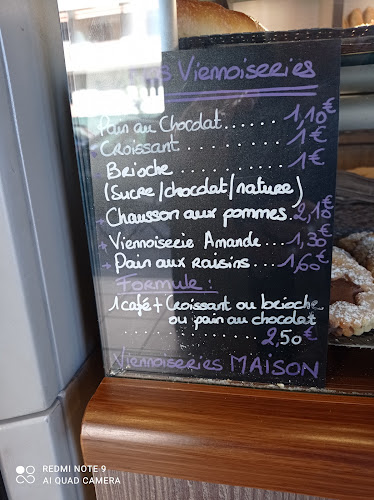 Nos Viennoiseries
Pain au Chocolat...... 1,10€
Croissant............ 1€
Brioche............ 1€
(Sucre/chocolat/nature)
Chausson aux pommes. 2,10€
+ Viennoiserie Amande...1,30€
+ Pain aux raisins....1,60€
FORMULE:
1 café + Croissant ou brioche
ou pain au chocolat
.................. 2,50€
Viennoiseries MAISON
REDMI NOTE 9
AI QUAD CAMERA